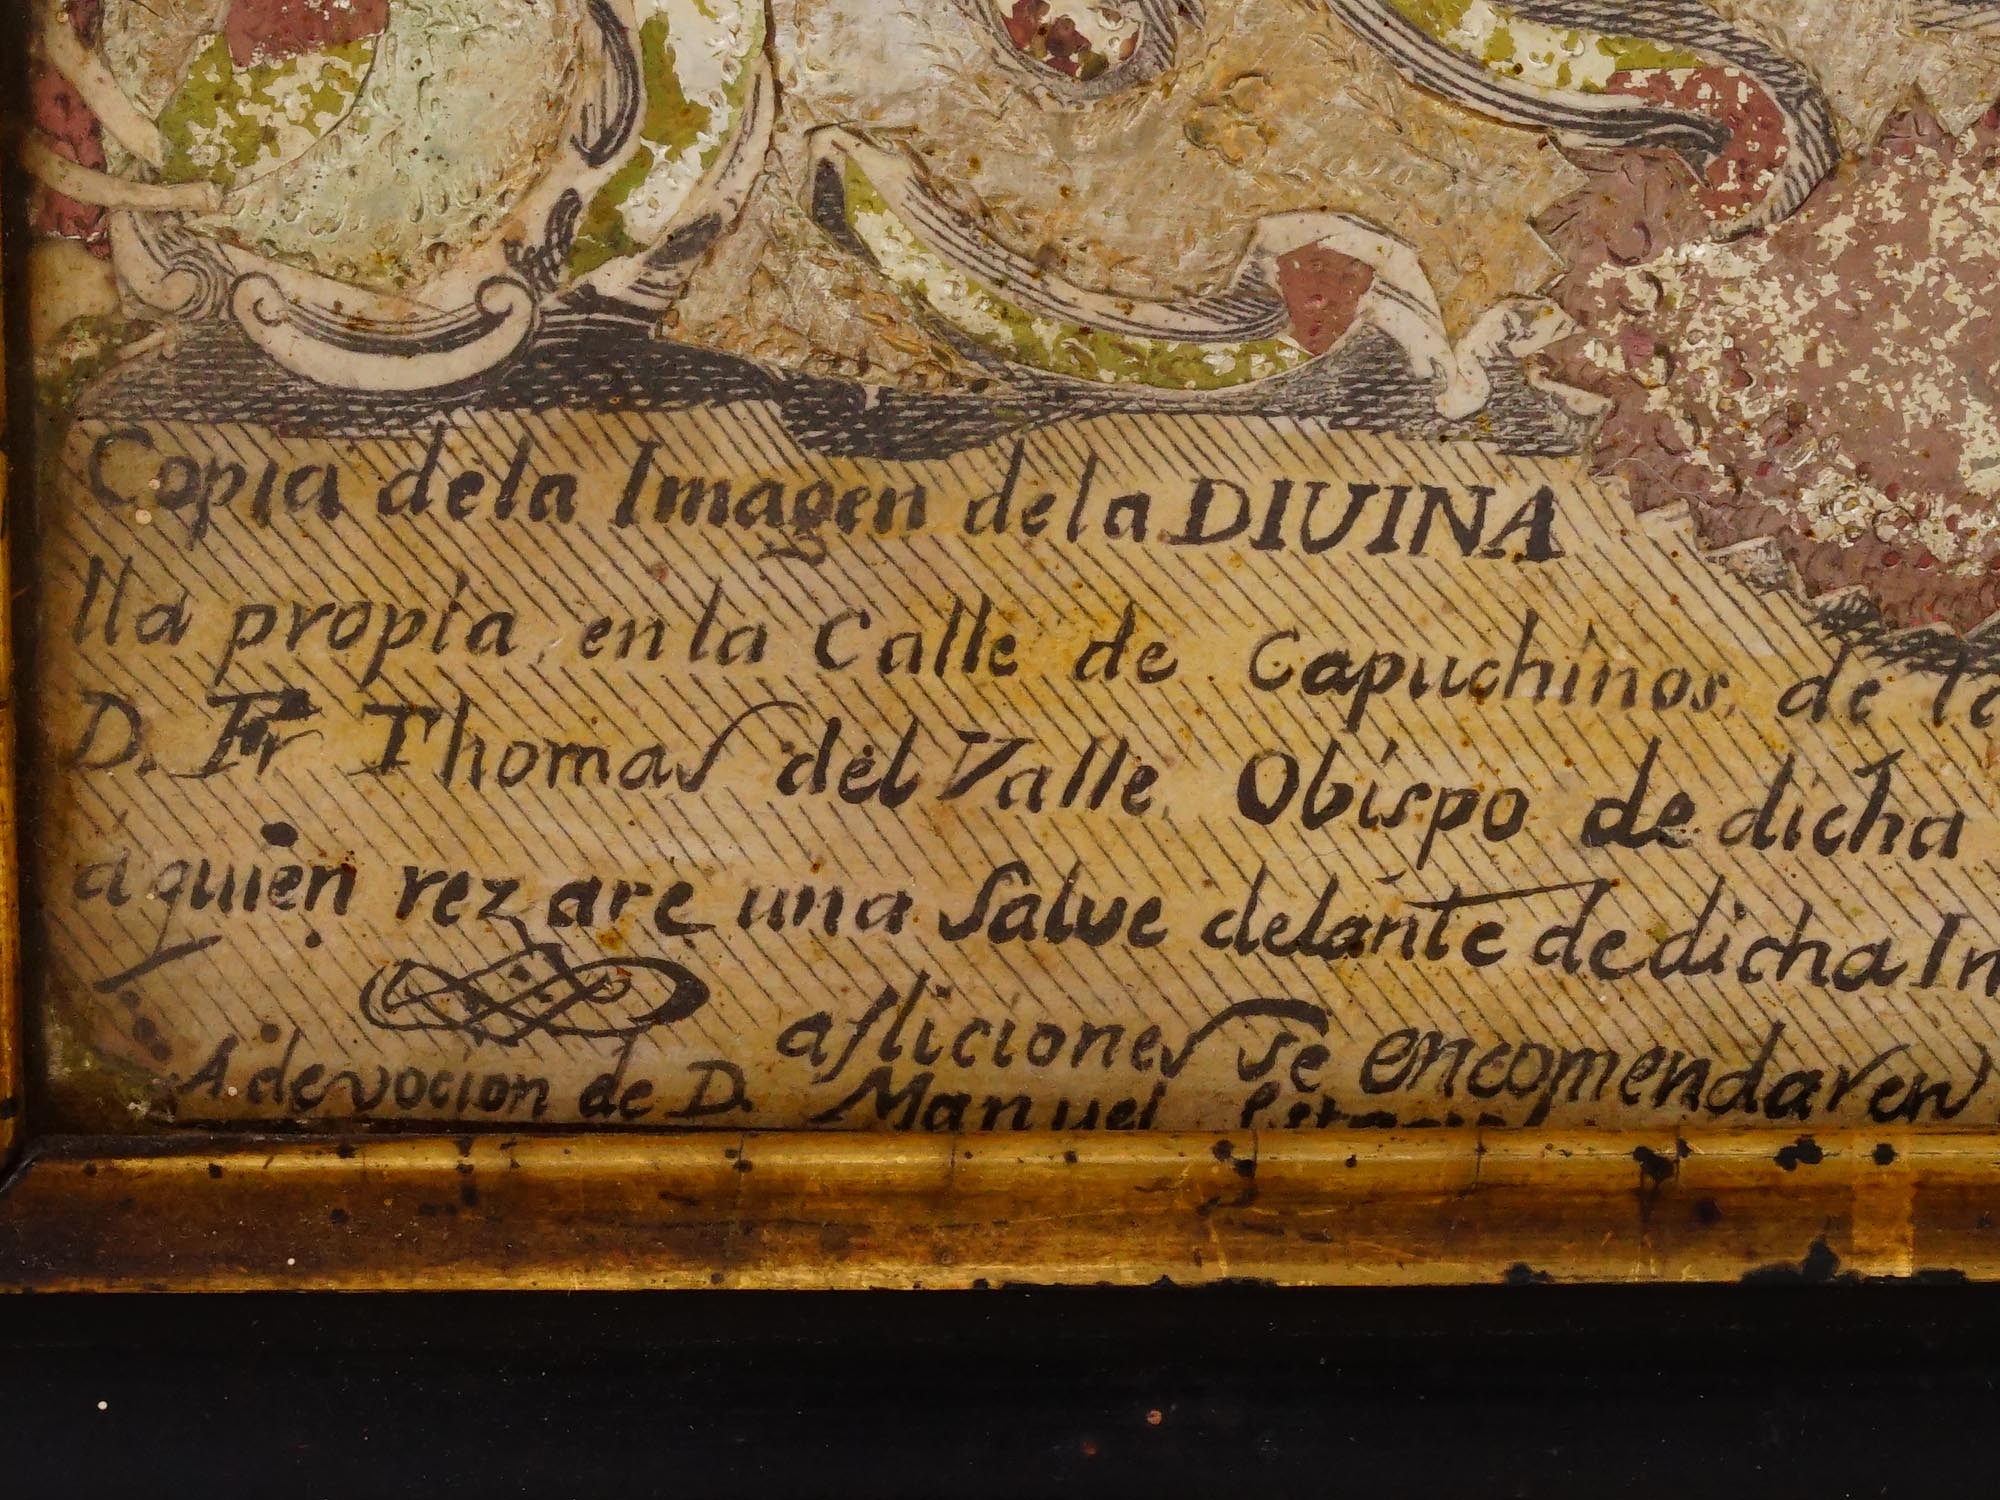 Copia dela Imagen dela DIUINA
lla propia, en la Calle de Capuchinos, de
D. Fr Thomas del Valle, Obispo de dicha
á quien rezare una Salve delante de dicha
afliciones se encomendaren
A devocion de D. Manuel